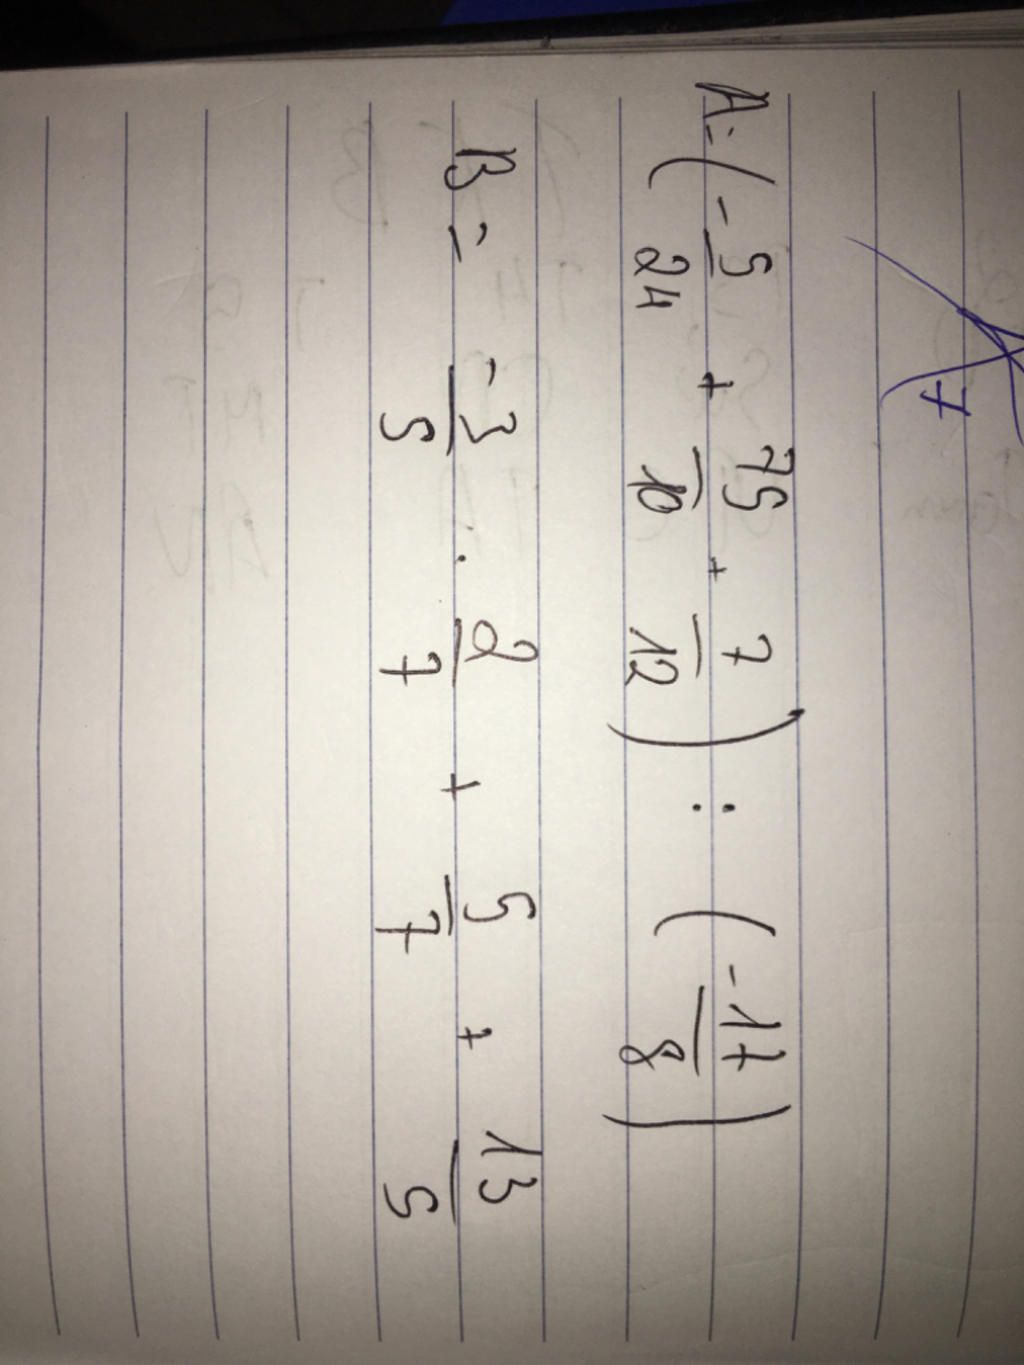 A = ( -5/24 + 75/10 + 7/12 ) : ( -17/8 )
B = -3/5 . 2/7 + 5/7 + 13/5